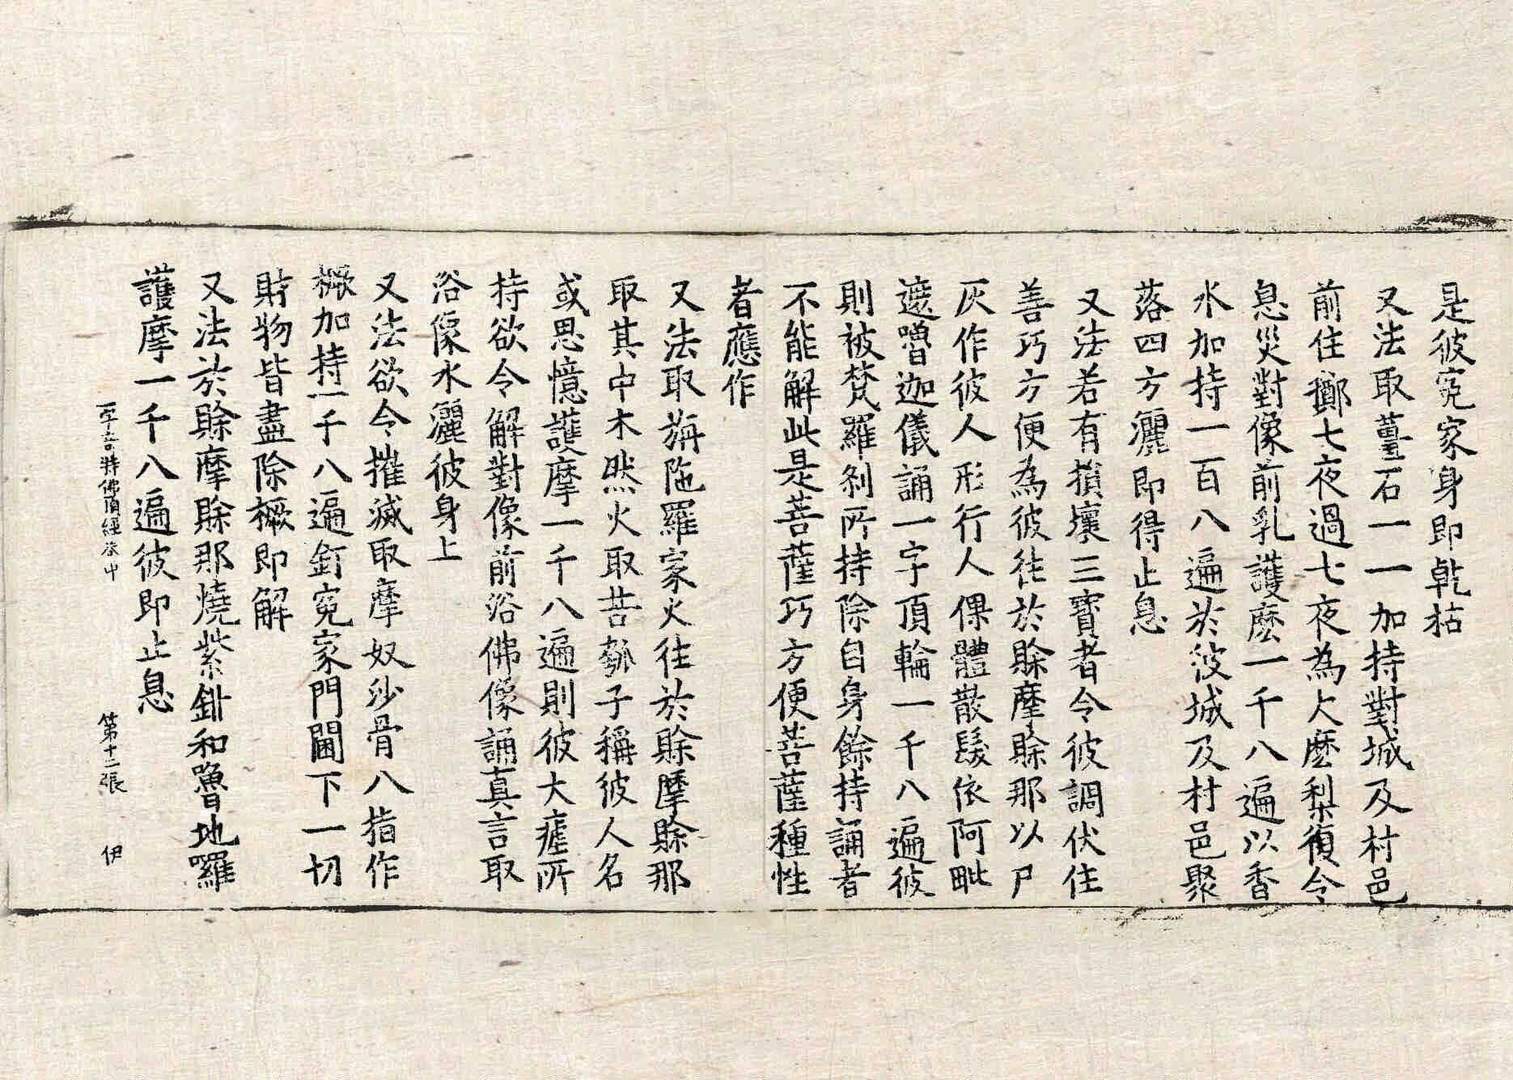 是彼寃家身即乾枯
又法取薑石一一加持對城及村邑
前住擲七夜過七夜為大麼梨復令
息災對像前乳護麽一千八遍以香
水加持一百八遍於彼城及村邑聚
落四方灑即得止息
又法若有損壞三寳者令彼調伏住
善巧方便為彼往於賒摩賒那以尸
灰作彼人形行人倮體散髮依阿毗
遮嚕迦儀誦一字頂輪一千八遍彼
則被梵羅剎所持除自身餘持誦者
不能解此是菩薩巧方便菩薩種性
者應作
又法取旃陁羅家火往於賒摩賒那
取其中木然火取苦瓠子稱彼人名
或思憶護摩一千八遍則彼大瘧所
持欲令解對像前浴佛像誦真言取
浴像水灑彼身上
又法欲令摧滅取摩奴沙骨八指作
橛加持一千八遍釘寃家門閫下一切
財物皆盡除橛即解
又法於賒摩賒那燒紫鉚和嚕地囉
護摩一千八遍彼即止息
一字奇特佛頂經卷中 第十二張 伊